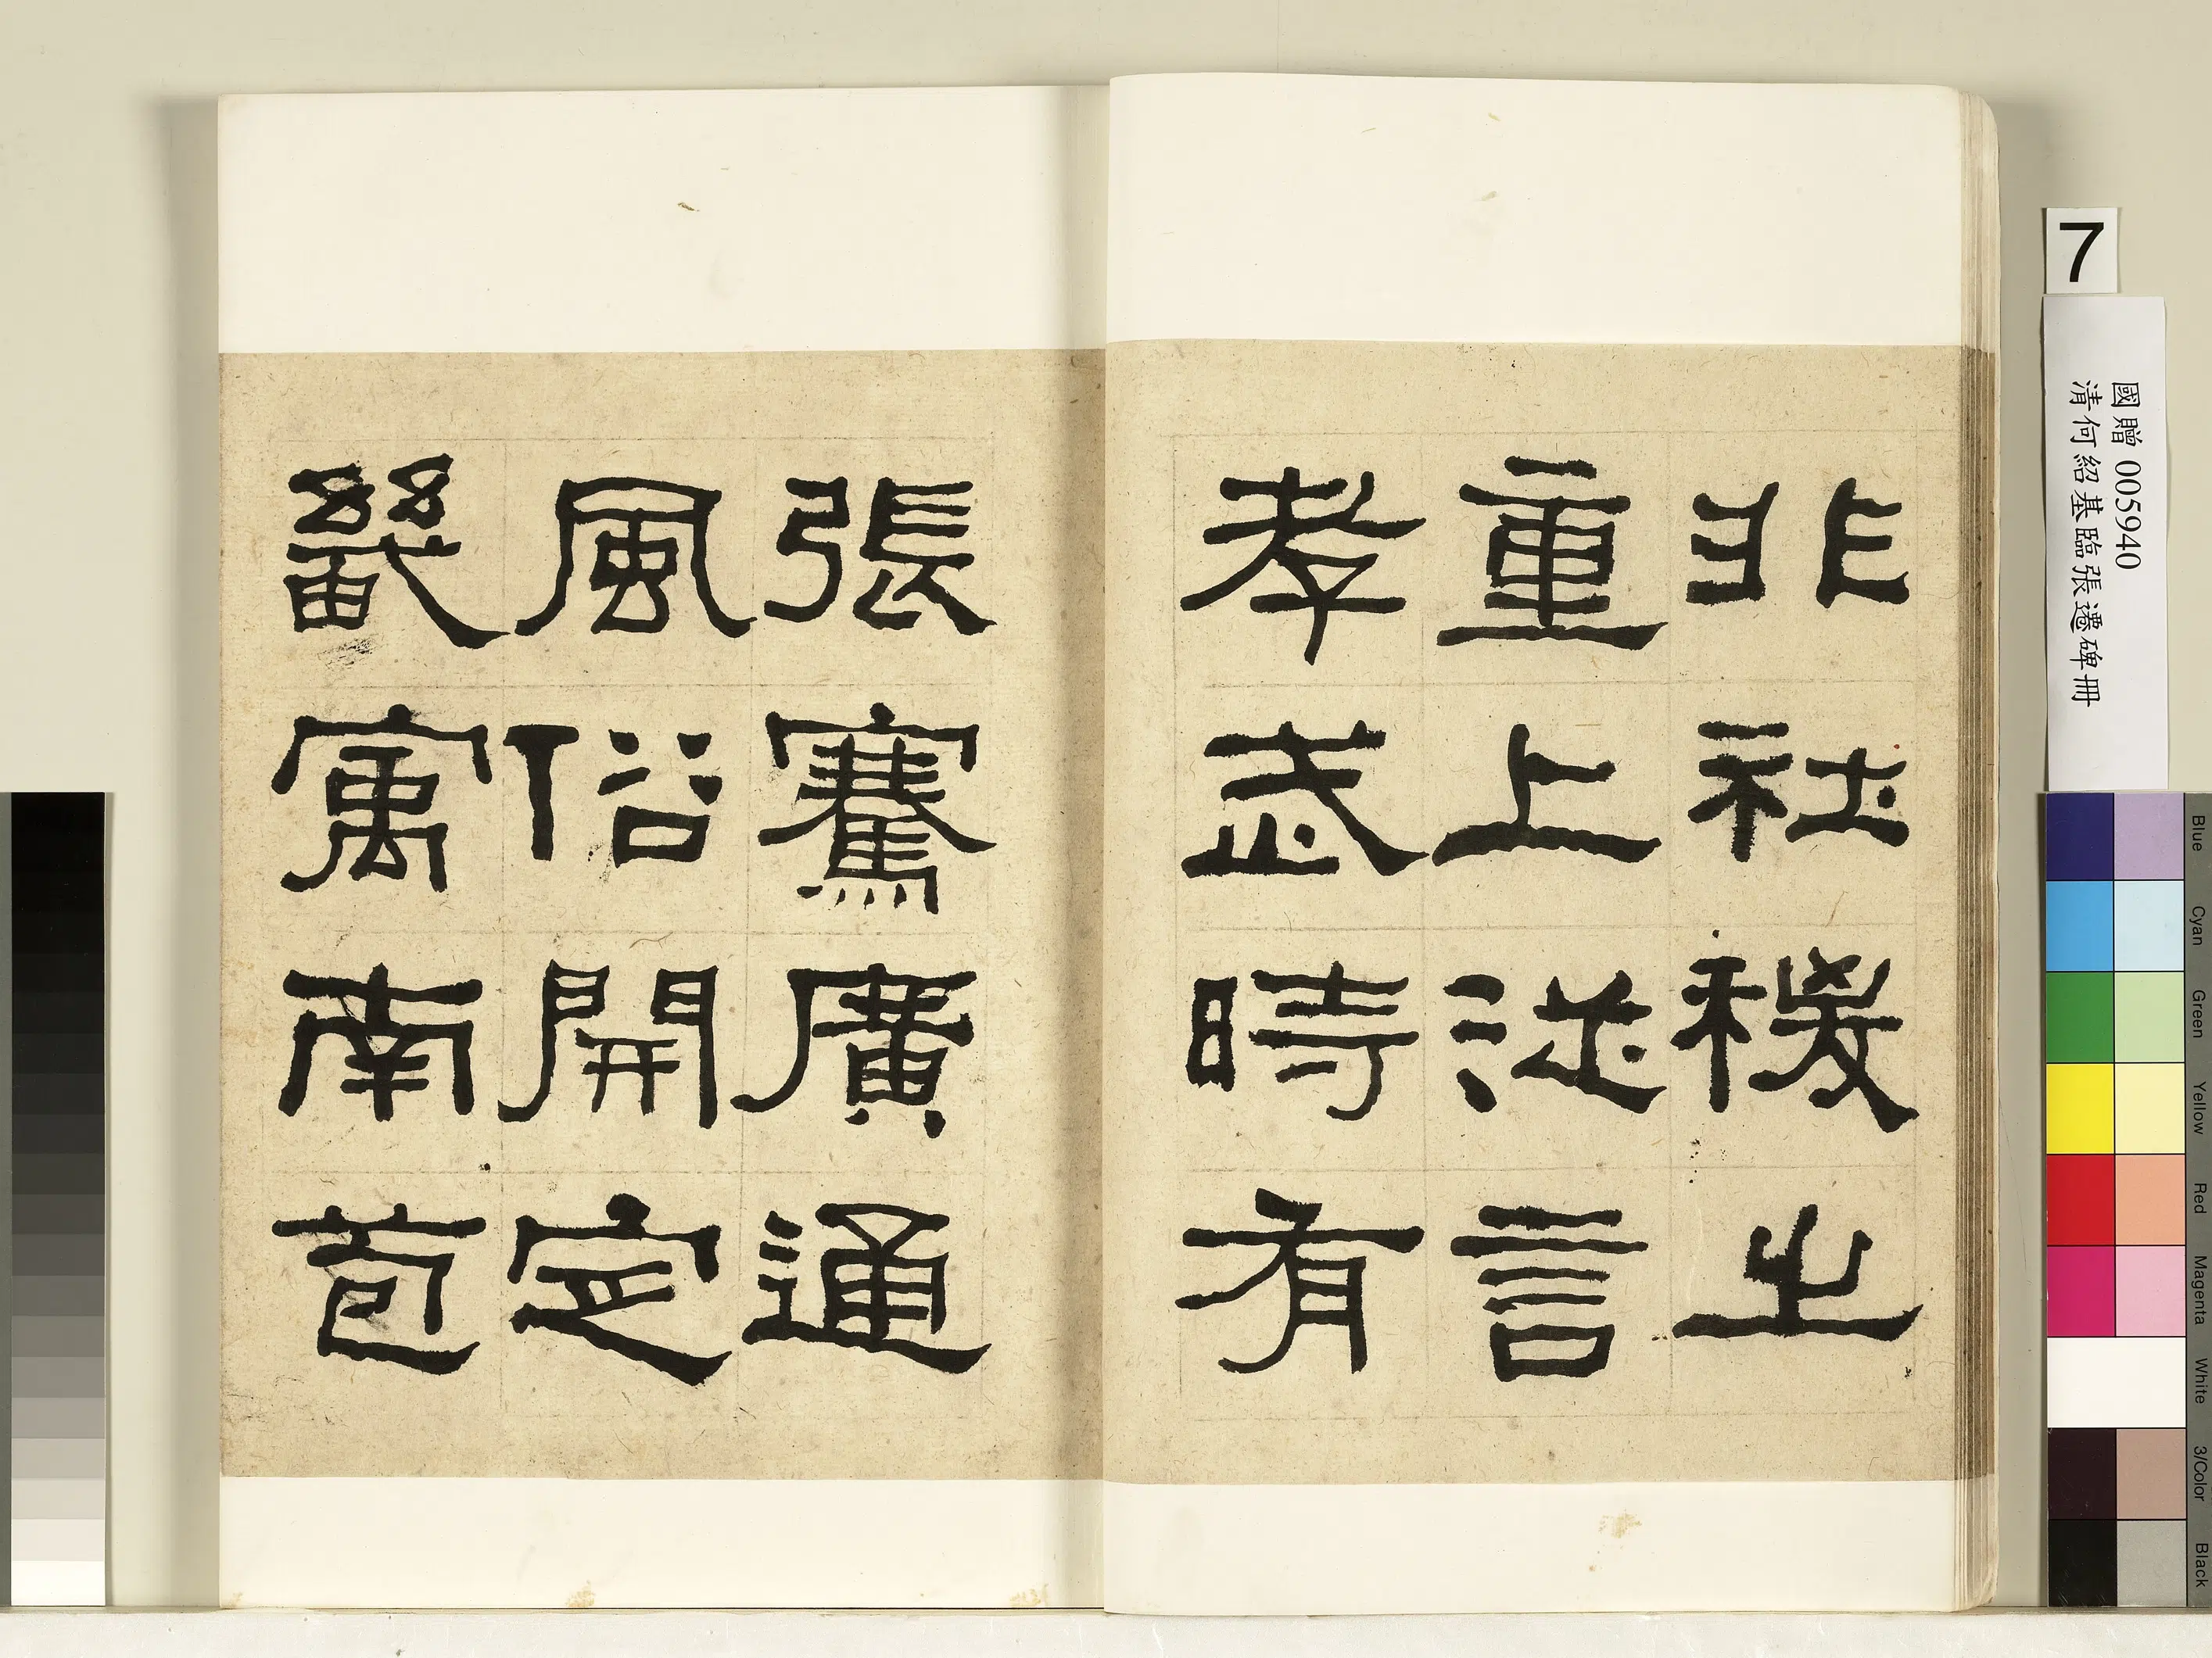 非社稷之
重上從言
孝武時有
張騫廣通
風俗開定
畿寓南苞
7
國贈 005940
清何紹基臨張遷碑冊
Blue
Cyan
Green
Yellow
Red
Magenta
White
3/Color
Black